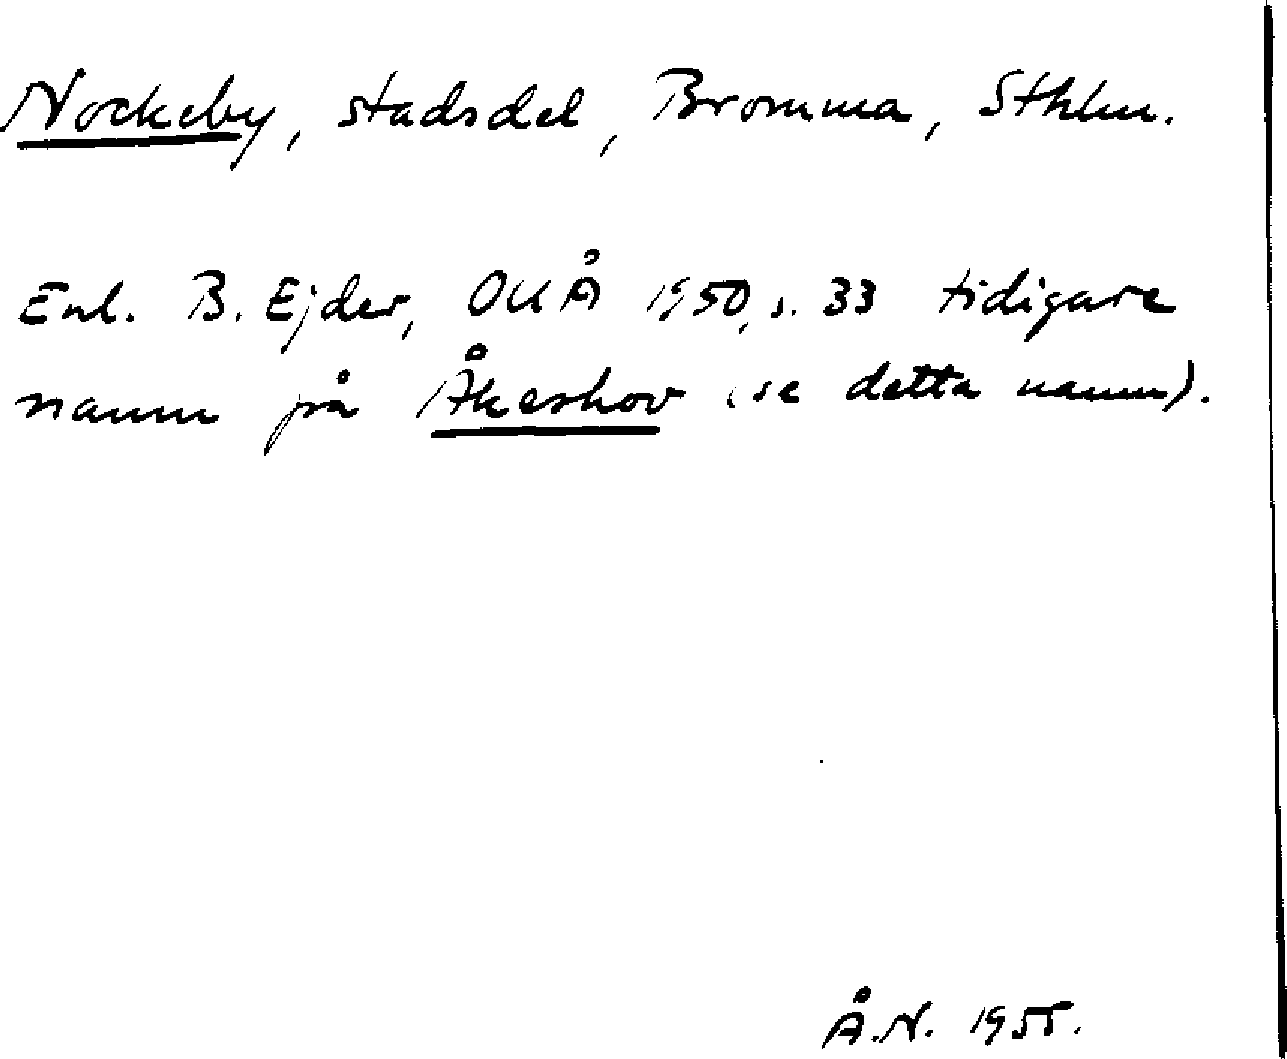 Nockeby, stadsdel, Bromma, Sthlm.
Enl. B. Ejder, OUÅ 1950, s. 33 tidigare
namn på Åkeshov (se detta namn).
Å.N. 1955.